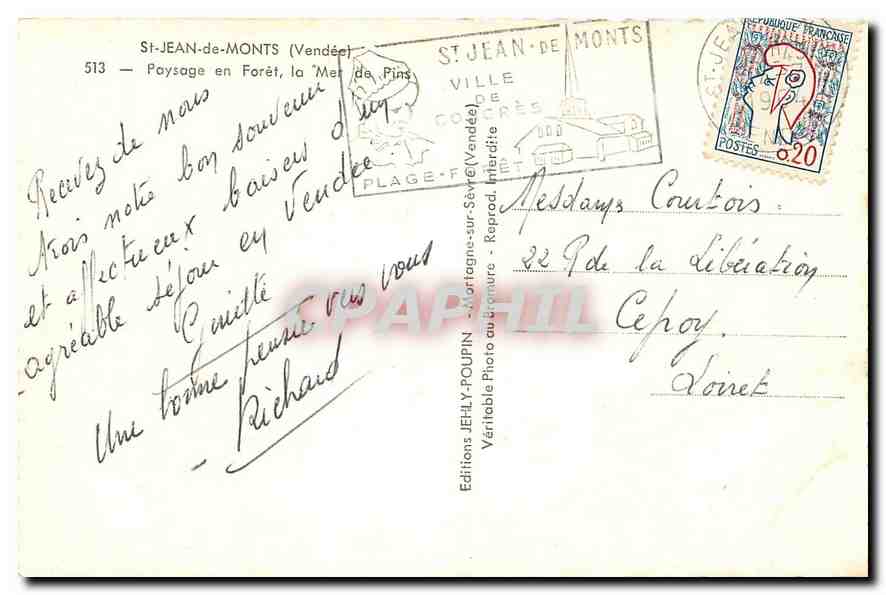 St-JEAN-de-MONTS (Vendée)
513 — Paysage en Forêt, la Mer de Pins
Recevez de nous
trois notre bon souvenir
et affectueux baisers d'un
agréable séjour en Vendée
Guitte
Une bonne pensée vers vous
Richard
ST JEAN-DE MONTS
VILLE
DE
CONGRÈS
PLAGE-FORÊT
ST-JEAN
RÉPUBLIQUE FRANÇAISE
POSTES 0,20
Editions JEHLY-POUPIN - Mortagne-sur-Sèvre (Vendée)
Véritable Photo au Bromure - Reprod. Interdite
Mesdames Courtois
22 R de la Libération
Cepoy
Loiret
CPAPHIL